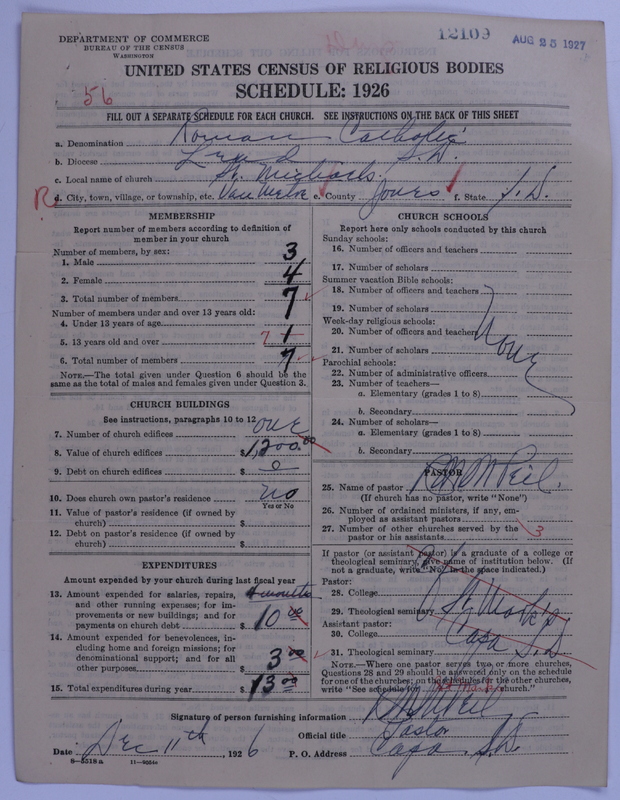 12109
AUG 25 1927
DEPARTMENT OF COMMERCE
BUREAU OF THE CENSUS
WASHINGTON
UNITED STATES CENSUS OF RELIGIOUS BODIES
SCHEDULE: 1926
56
FILL OUT A SEPARATE SCHEDULE FOR EACH CHURCH. SEE INSTRUCTIONS ON THE BACK OF THIS SHEET
a. Denomination Roman Catholic
b. Diocese Lead S.D.
c. Local name of church St. Michaels.
R d. City, town, village, or township, etc. Van Metre e. County Jones f. State S.D.
MEMBERSHIP
Report number of members according to definition of member in your church
Number of members, by sex:
1. Male 3
2. Female 4
3. Total number of members 7
Number of members under and over 13 years old:
4. Under 13 years of age
5. 13 years old and over 7 1
6. Total number of members 7
NOTE.—The total given under Question 6 should be the same as the total of males and females given under Question 3.
CHURCH BUILDINGS
See instructions, paragraphs 10 to 12
7. Number of church edifices one
8. Value of church edifices $1,200.00
9. Debt on church edifices $ 0
10. Does church own pastor's residence no
Yes or No
11. Value of pastor's residence (if owned by church) $
12. Debt on pastor's residence (if owned by church) $
EXPENDITURES
Amount expended by your church during last fiscal year
4 months
13. Amount expended for salaries, repairs, and other running expenses; for improvements or new buildings; and for payments on church debt $ 10 00
14. Amount expended for benevolences, including home and foreign missions; for denominational support; and for all other purposes $ 3 00
15. Total expenditures during year $ 13 00
CHURCH SCHOOLS
Report here only schools conducted by this church
Sunday schools:
16. Number of officers and teachers
17. Number of scholars
Summer vacation Bible schools:
18. Number of officers and teachers
19. Number of scholars
Week-day religious schools:
20. Number of officers and teachers
none
21. Number of scholars
Parochial schools:
22. Number of administrative officers
23. Number of teachers—
a. Elementary (grades 1 to 8)
b. Secondary
24. Number of scholars—
a. Elementary (grades 1 to 8)
b. Secondary
PASTOR
25. Name of pastor
(If church has no pastor, write "None")
26. Number of ordained ministers, if any, employed as assistant pastors
27. Number of other churches served by the pastor or his assistants 3
If pastor (or assistant pastor) is a graduate of a college or theological seminary, give name of institution below. (If not a graduate, write "No" in the space indicated.)
Pastor:
28. College
29. Theological seminary St Marks
Assistant pastor:
30. College Capa S.D
31. Theological seminary
NOTE.—Where one pastor serves two or more churches, Questions 28 and 29 should be answered only on the schedule for one of the churches; on the schedules for the other churches, write "See schedule for St. Marks church."
Signature of person furnishing information
Official title Pastor
Date Dec 11th, 1926 P. O. Address Capa S.D.
8-5518 a